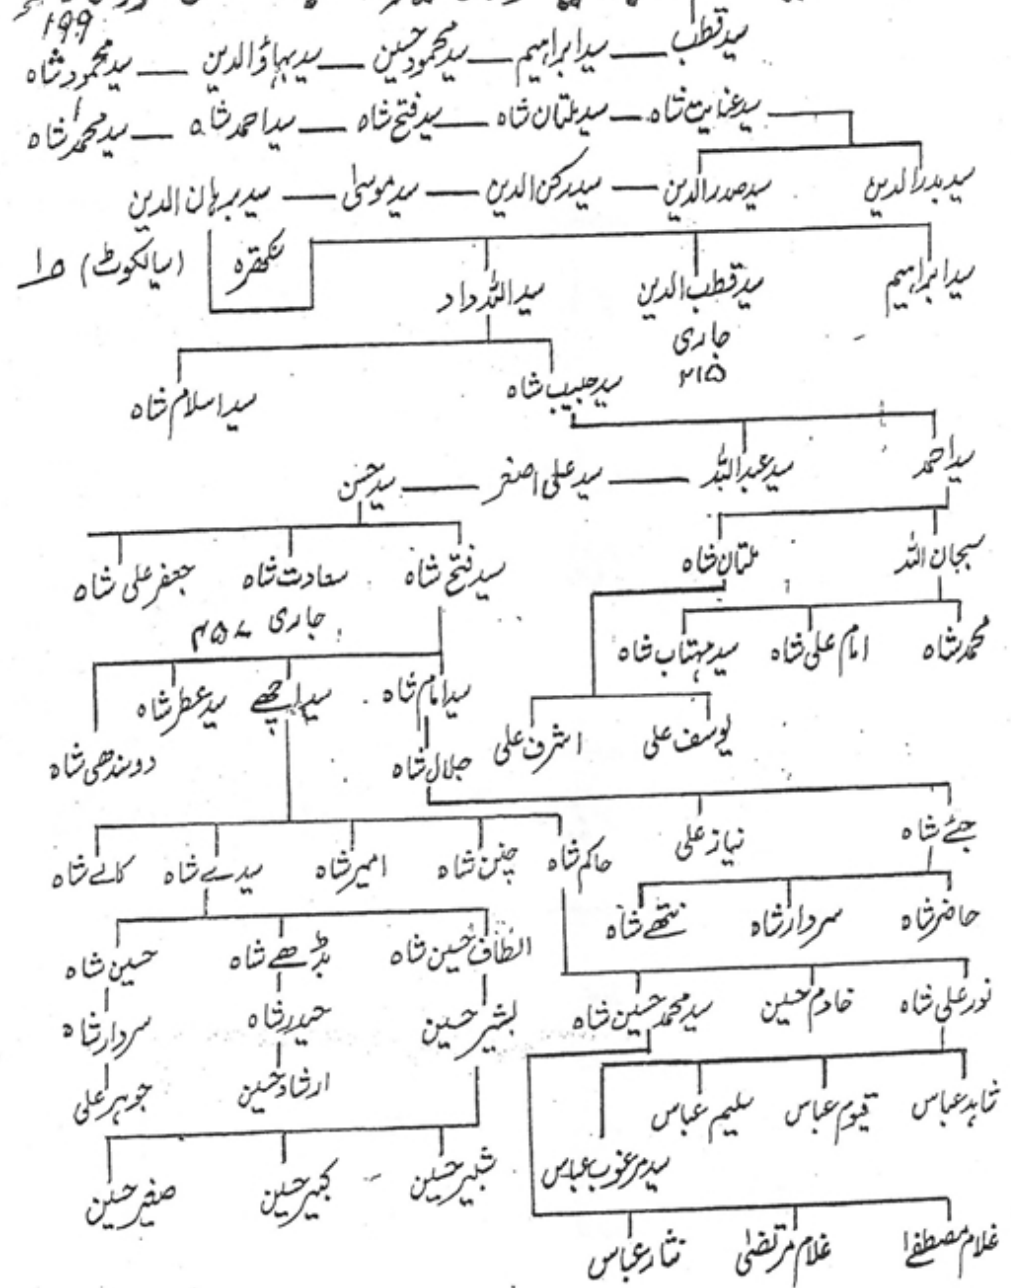 ۱۹۹
سید قطب — سید ابراہیم — سید محمود حسین — سید بہاؤالدین — سید محمود شاہ
سید عنایت شاہ — سید ملتان شاہ — سید فتح شاہ — سید احمد شاہ — سید محمد شاہ
سید بدرالدین سید صدرالدین — سید رکن الدین — سید موسیٰ — سید برہان الدین
سید ابراہیم سید قطب الدین سید اللہ داد (سیالکوٹ)
جاری
۲۱۵
سید حبیب شاہ سید اسلام شاہ
سید احمد سید عبداللہ — سید علی اصغر — سید حسن
سبحان اللہ ملتان شاہ سید فتح شاہ سعادت شاہ جعفر علی شاہ
جاری ۴۵۷
محمد شاہ امام علی شاہ سید مہتاب شاہ
سید امام شاہ سید اچھے سید عطر شاہ
یوسف علی اشرف علی جلال شاہ دوندھی شاہ
جئے شاہ نیاز علی حاکم شاہ چنن شاہ امیر شاہ سیدے شاہ کالے شاہ
حاضر شاہ سردار شاہ نتھے شاہ الطاف حسین شاہ بڈھے شاہ حسین شاہ
نور علی شاہ خادم حسین سید محمد حسین شاہ بشیر حسین حیدر شاہ سردار شاہ
شاہد عباس قیوم عباس سلیم عباس ارشاد حسین جوہر علی
سید مرغوب عباس شبیر حسین کبیر حسین صغیر حسین
غلام مصطفےٰ غلام مرتضیٰ نثار عباس